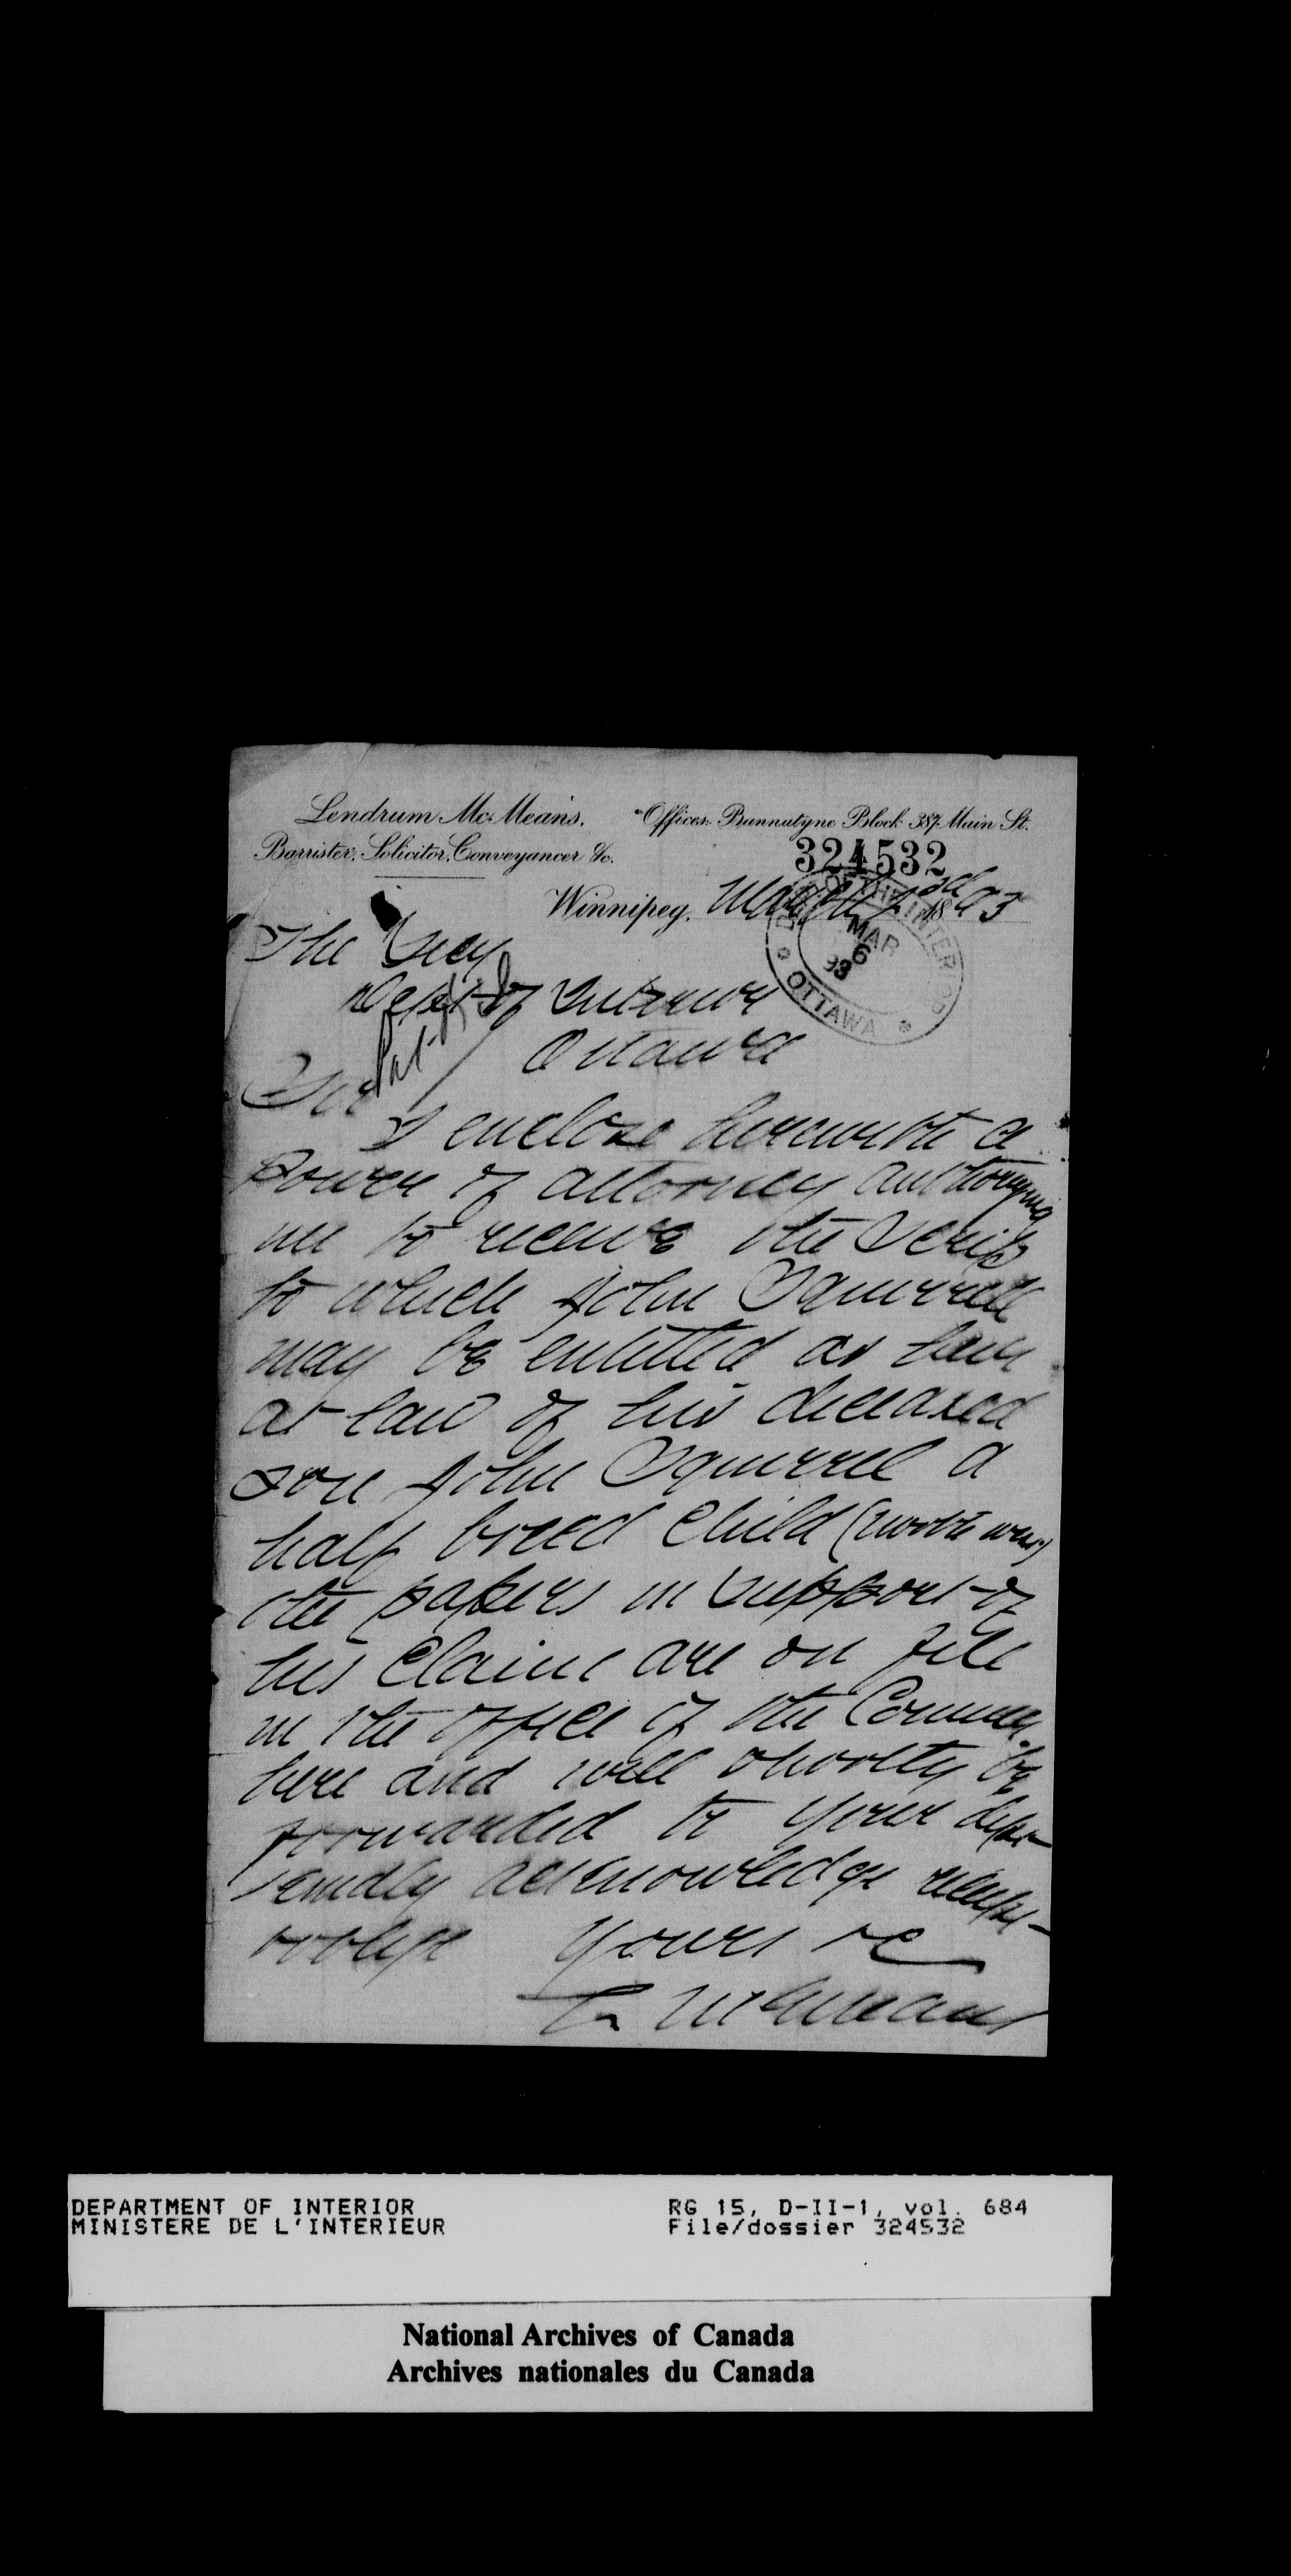 Lendrum McMeans.
Offices: Bannatyne Block 387 Main St.
Barrister, Solicitor, Conveyancer &c.
324532
Winnipeg, March 2nd 1893
DEPT OF THE INTERIOR
MAR
6
93
OTTAWA
The Secy
Dept of Interior
Ottawa
Sir
I enclose herewith a
power of attorney authorizing
me to receive the Scrip
to which John Squirrell
may be entitled as heir
at law of his deceased
son John Squirrel a
half breed child (North West)
the papers in support of
his claim are on file
in the office of the Commr
here and will shortly be
forwarded to your dept
kindly acknowledge receipt
& oblige Yours &c
L McMeans
DEPARTMENT OF INTERIOR
MINISTERE DE L'INTERIEUR
RG 15, D-II-1, vol. 684
File/dossier 324532
National Archives of Canada
Archives nationales du Canada